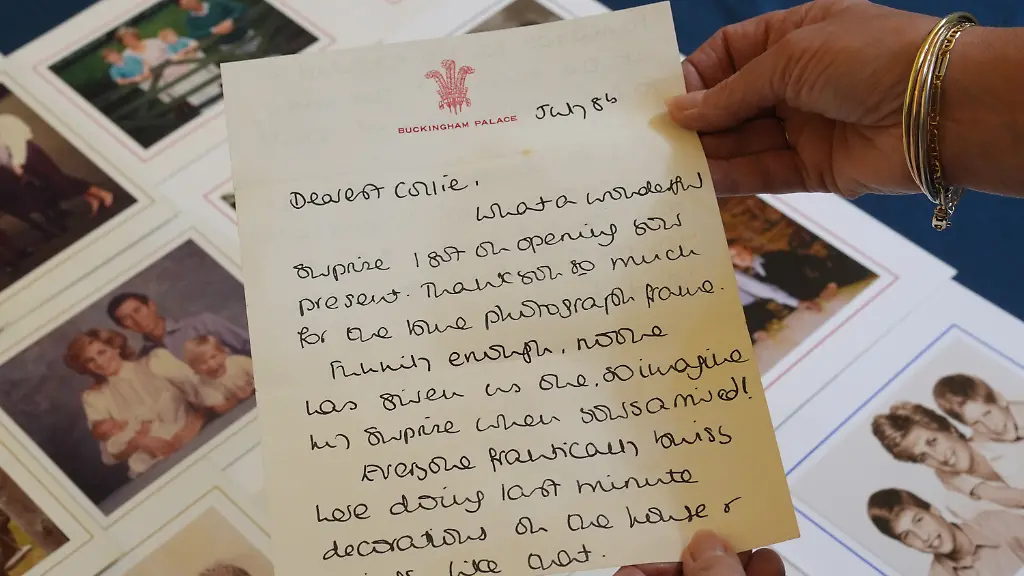 BUCKINGHAM PALACE
July 8th
Dearest Collie,
What a wonderful
surprise I got on opening your
present. Thank you so much
for the photograph frame.
Funnily enough, no one
has given us one, so imagine
my surprise when yours arrived!
Everyone frantically busy
here doing last minute
decorations on the house &
like that.